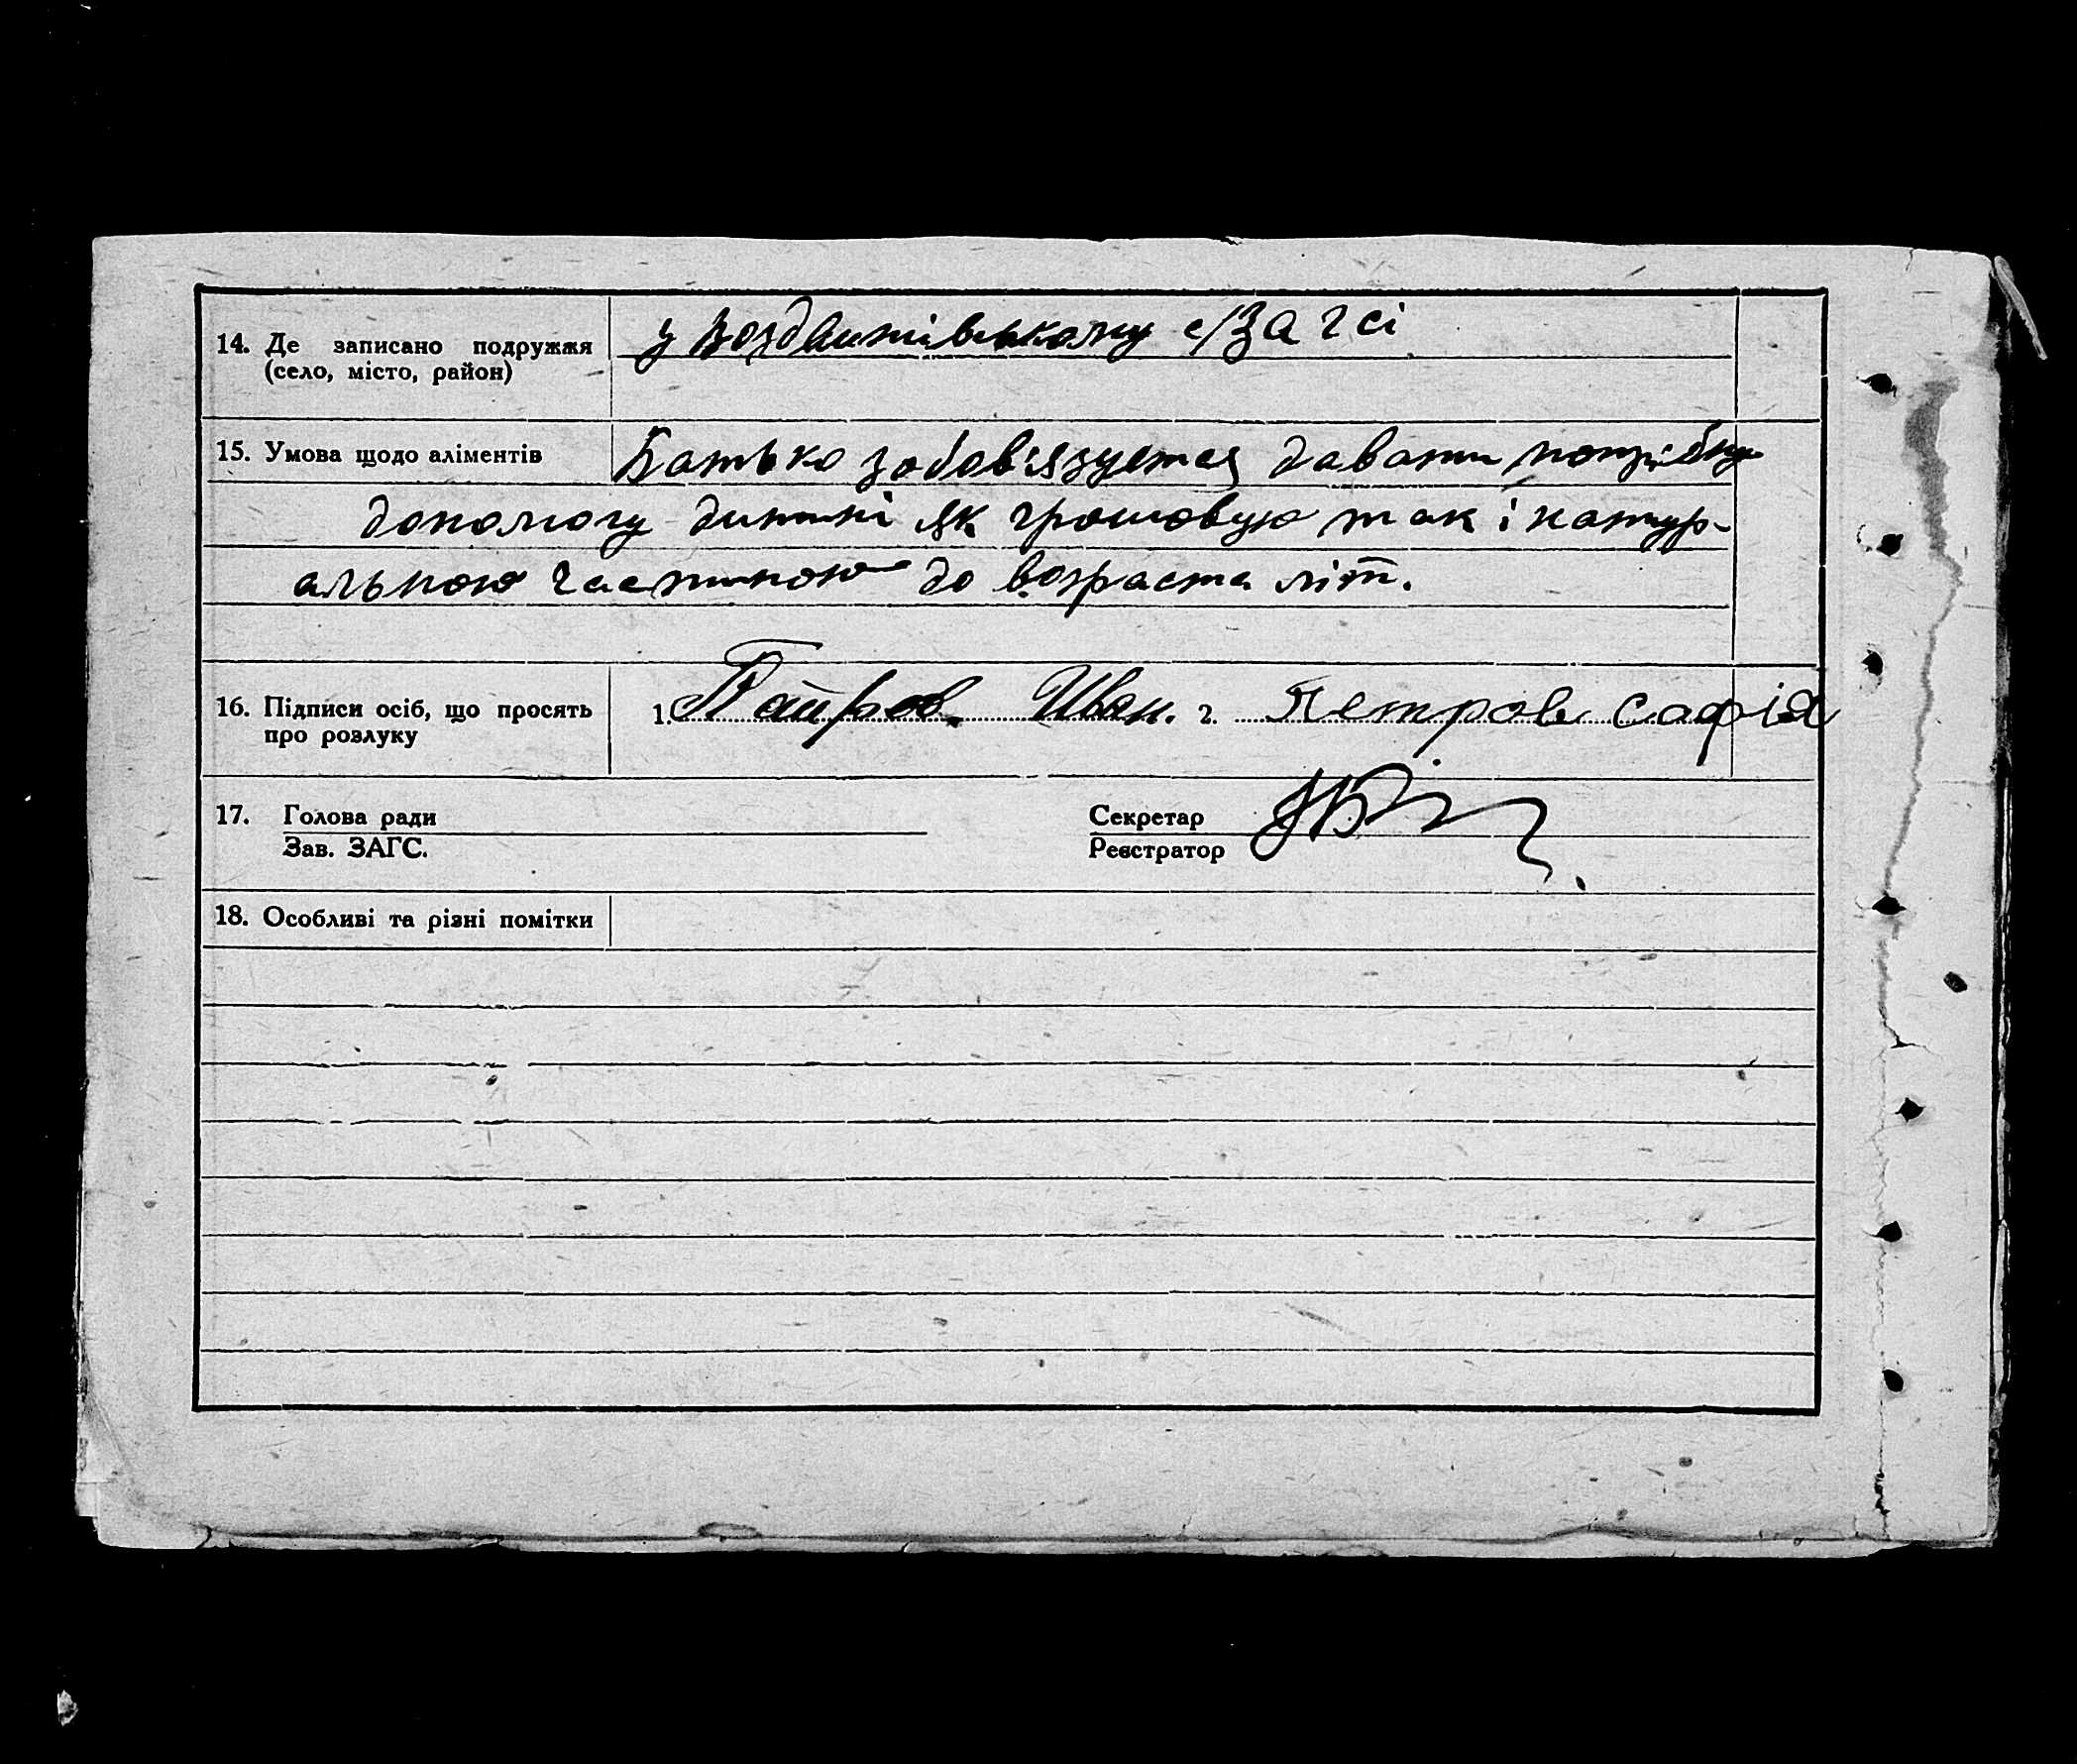 14. Де записано подружжя
(село, місто, район)
у с/Загсі
15. Умова щодо аліментів
Батько зобов'язується давати потрібну
допомогу дитині як грошовую так і натур-
альною частиною до возраста літ.
16. Підписи осіб, що просять
про розлуку
1. Иван. 2. Петров Софія
17. Голова ради
Зав. ЗАГС.
Секретар
Реєстратор
18. Особливі та різні помітки